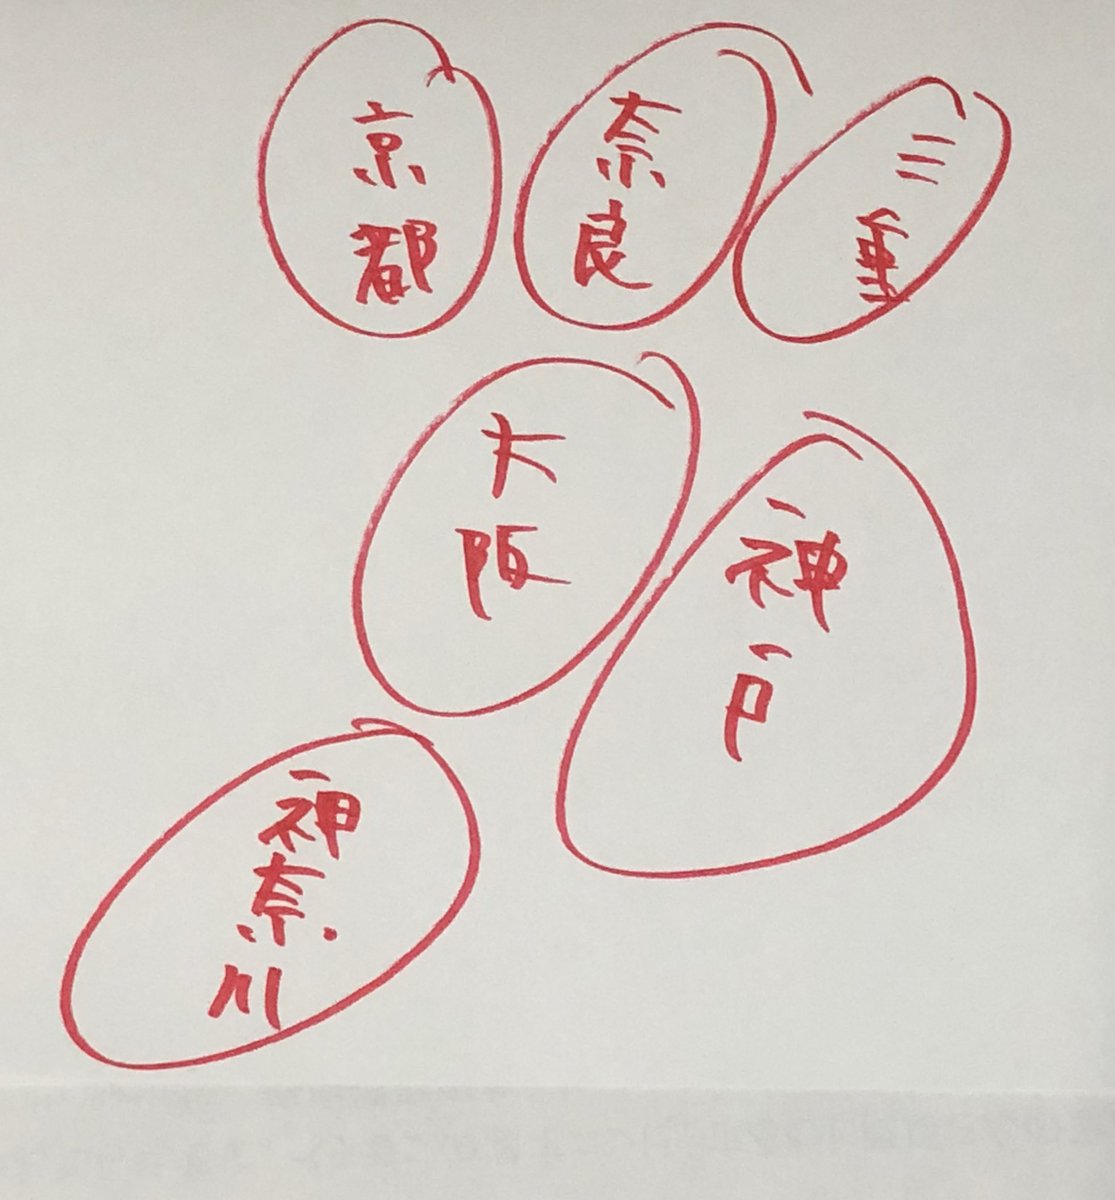 京都
奈良
三重
大阪
神戸
神奈川